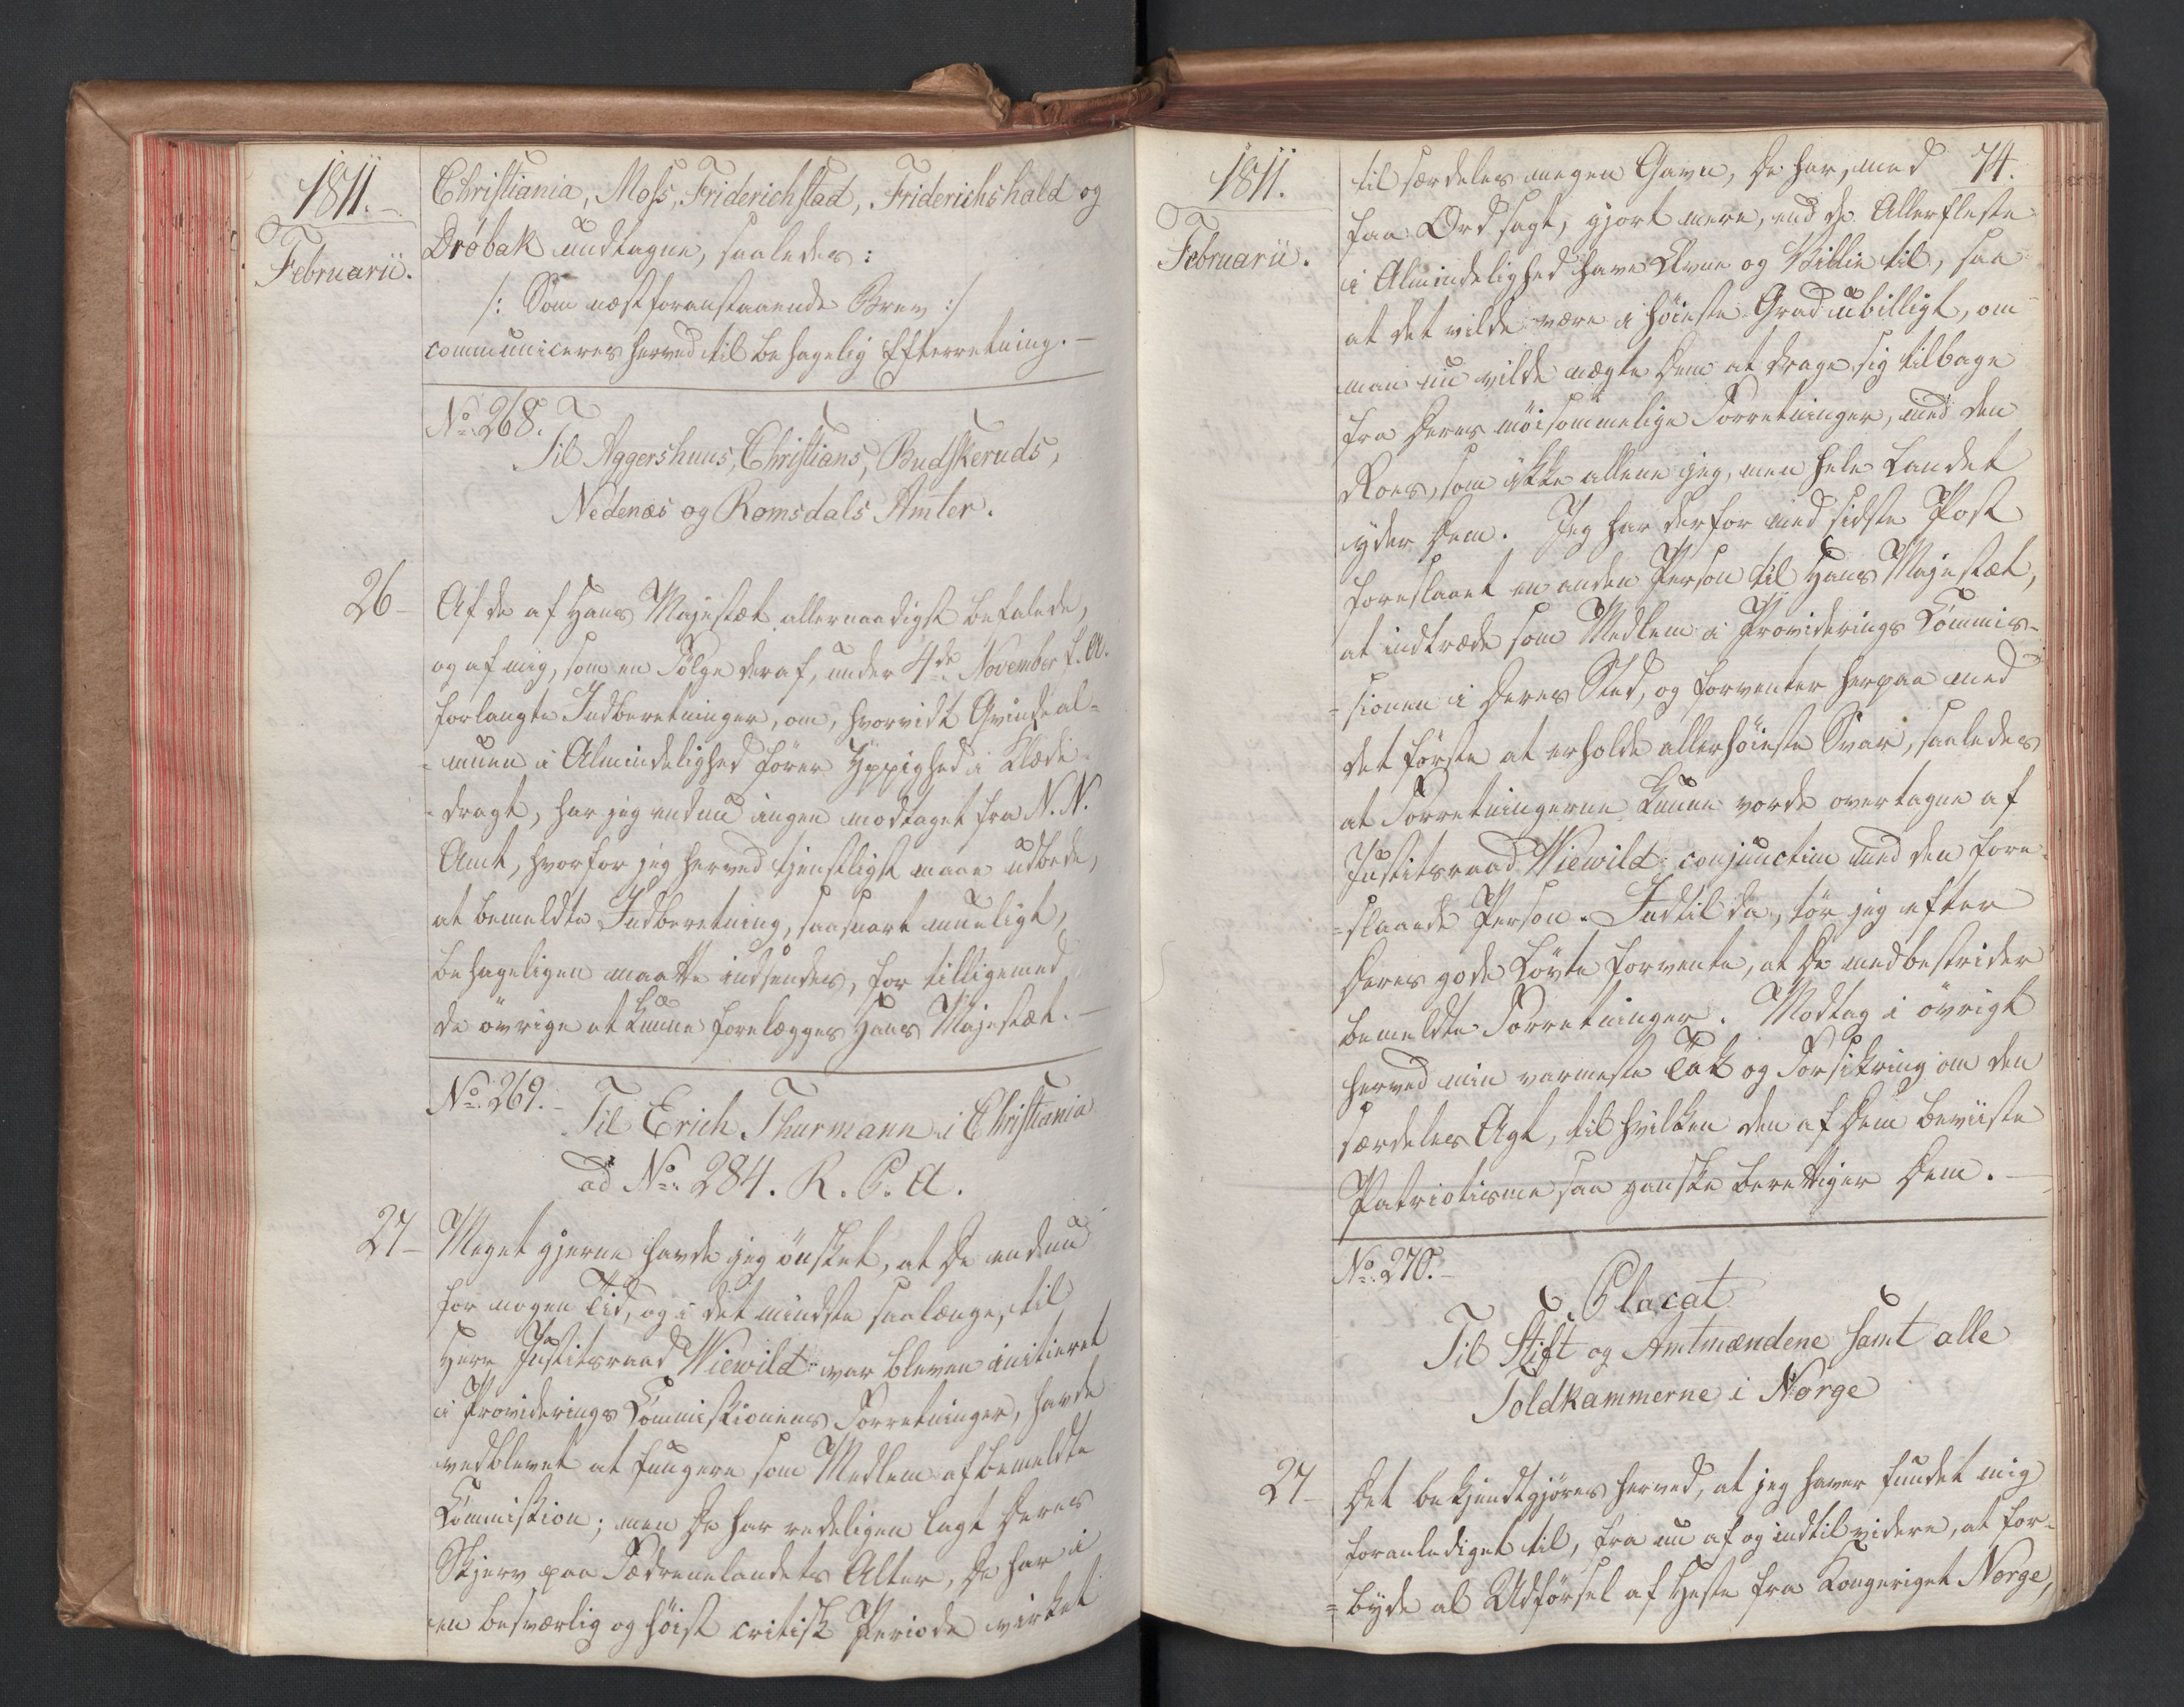 1811.
Februarii.
Christiania, Moss, Friderichstad, Friderichshald og
Dröbak undtagne, saaledes:
/: Som næstforanstaaende Brev :/
communiceres herved til behagelig Efterretning. —
No. 268.
Til Aggershuus, Christians, Budskeruds,
Nedenæs og Romsdals Amter.
26 –
Af de af Hans Majestæt allernaadigst befalede,
og af mig, som en Fölge deraf, under 4de November f. A.
forlangte Indberetninger, om, hvorvidt Qvindeal-
=muen i Almindelighed förer Yppighed i Klæde-
=dragt, har jeg endnu ingen modtaget fra N. N.
Amt, hvorfor jeg herved tjenstligst maae udbede,
at bemeldte Indberetning, saasnart mueligt,
behageligen maatte indsendes, for tilligemed
de övrige at kunne forelægges Hans Majestæt. —
No. 269. –
Til Erich Thurmann i Christiania
ad No. 284. R. P. A.
27 –
Meget gjerne havde jeg önsket, at De endnu
for nogen Tid, og i det mindste saalænge, til
Herr Justitsraad Wiewild var bleven initieret
i Providerings Commissionens Forretninger, havde
vedblevet at fungere som Medlem af bemeldte
Commission; men De har redeligen lagt Deres
Skjerv paa Fædrenelandets Alter, De har i
en besværlig og höist critisk Periode virket
1811.
Februarii.
74.
til særdeles megen Gavn, De har, med
faa Ord sagt, gjort mere, end de Allerfleste
i Almindelighed have Evne og Villie til, saa
at det vilde være i höieste Grad ubilligt, om
man nu vilde nægte Dem at drage sig tilbage
fra Deres möisommelige Forretninger, med den
Roes, som ikke allene jeg, men hele Landet
yder Dem. Jeg har derfor med sidste Post
foreslaaet en anden Person til Hans Majestæt,
at indtræde som Medlem i Providerings Commis-
=sionen i Deres Sted, og forventer herpaa med
det förste at erholde allerhöieste Svar, saaledes
at Forretningerne kunne vorde overtagne af
Justitsraad Wiewild conjunctim med den fore-
=slaaede Person. Indtil da, tör jeg efter
Deres gode Lövte forvente, at De medbestrider
bemeldte Forretninger. Modtag i övrigt
herved min varmeste Tak og Forsikring om den
særdeles Agt, til hvilken den af Dem beviiste
Patriotisme saa ganske berettiger Dem. —
No. 270. –
Placat
Til Stift og Amtmændene samt alle
Toldkammerne i Norge
27 –
Det bekjendtgjöres herved, at jeg haver fundet mig
foranlediget til, fra nu af og indtil videre, at for-
=byde al Udförsel af Heste fra Kongeriget Norge,